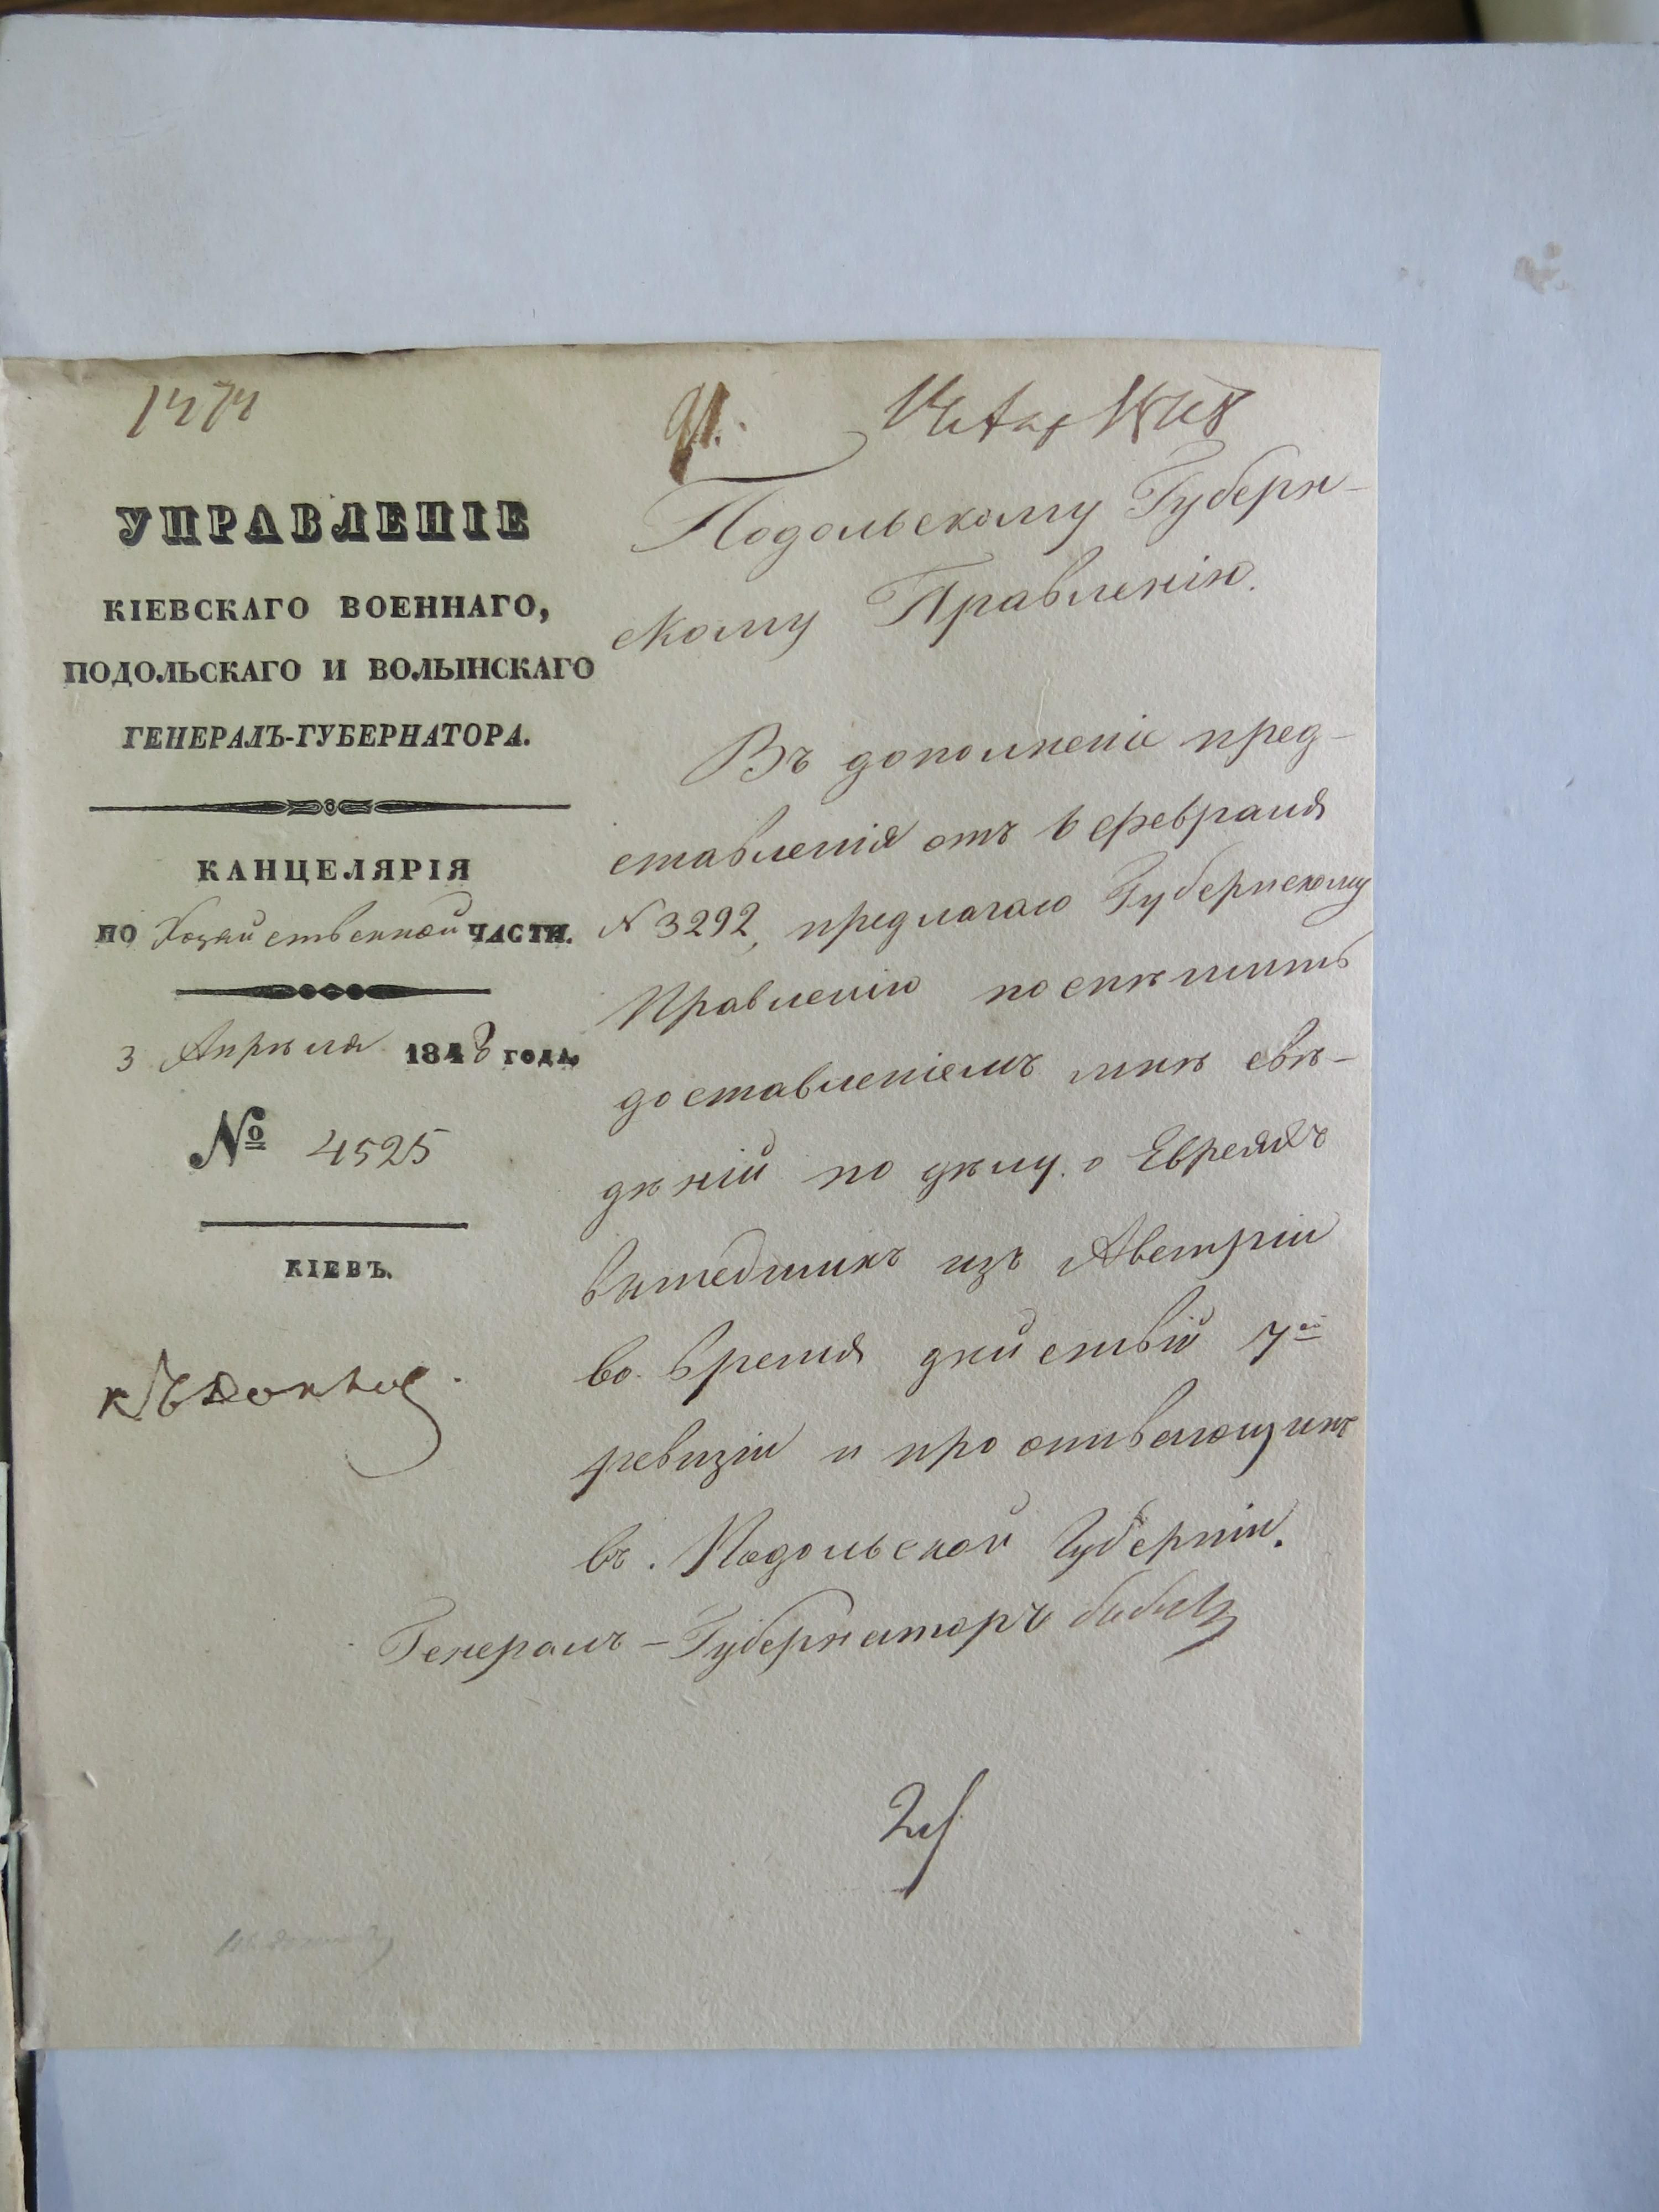 УПРАВЛЕНІЕ
КІЕВСКАГО ВОЕННАГО,
ПОДОЛЬСКАГО И ВОЛЫНСКАГО
ГЕНЕРАЛЪ-ГУБЕРНАТОРА.
КАНЦЕЛЯРІЯ
ПО Хозяйственной ЧАСТИ.
3 Апрѣля 1848 ГОДА.
№ 4525
КІЕВЪ.
Подольскому Губерн-
скому Правленію.
Въ дополненіе пред-
ставленія отъ 6 февраля
N 3292, предлагаю Губернскому
Правленію поспѣшить
доставленіемъ мнѣ свѣ-
дѣній по дѣлу о Евреяхъ
вышедшихъ изъ Австріи
во время дѣйствій 7ой
ревизіи и проживающихъ
въ Подольской Губерніи.
Генералъ-Губернаторъ Бибиковъ